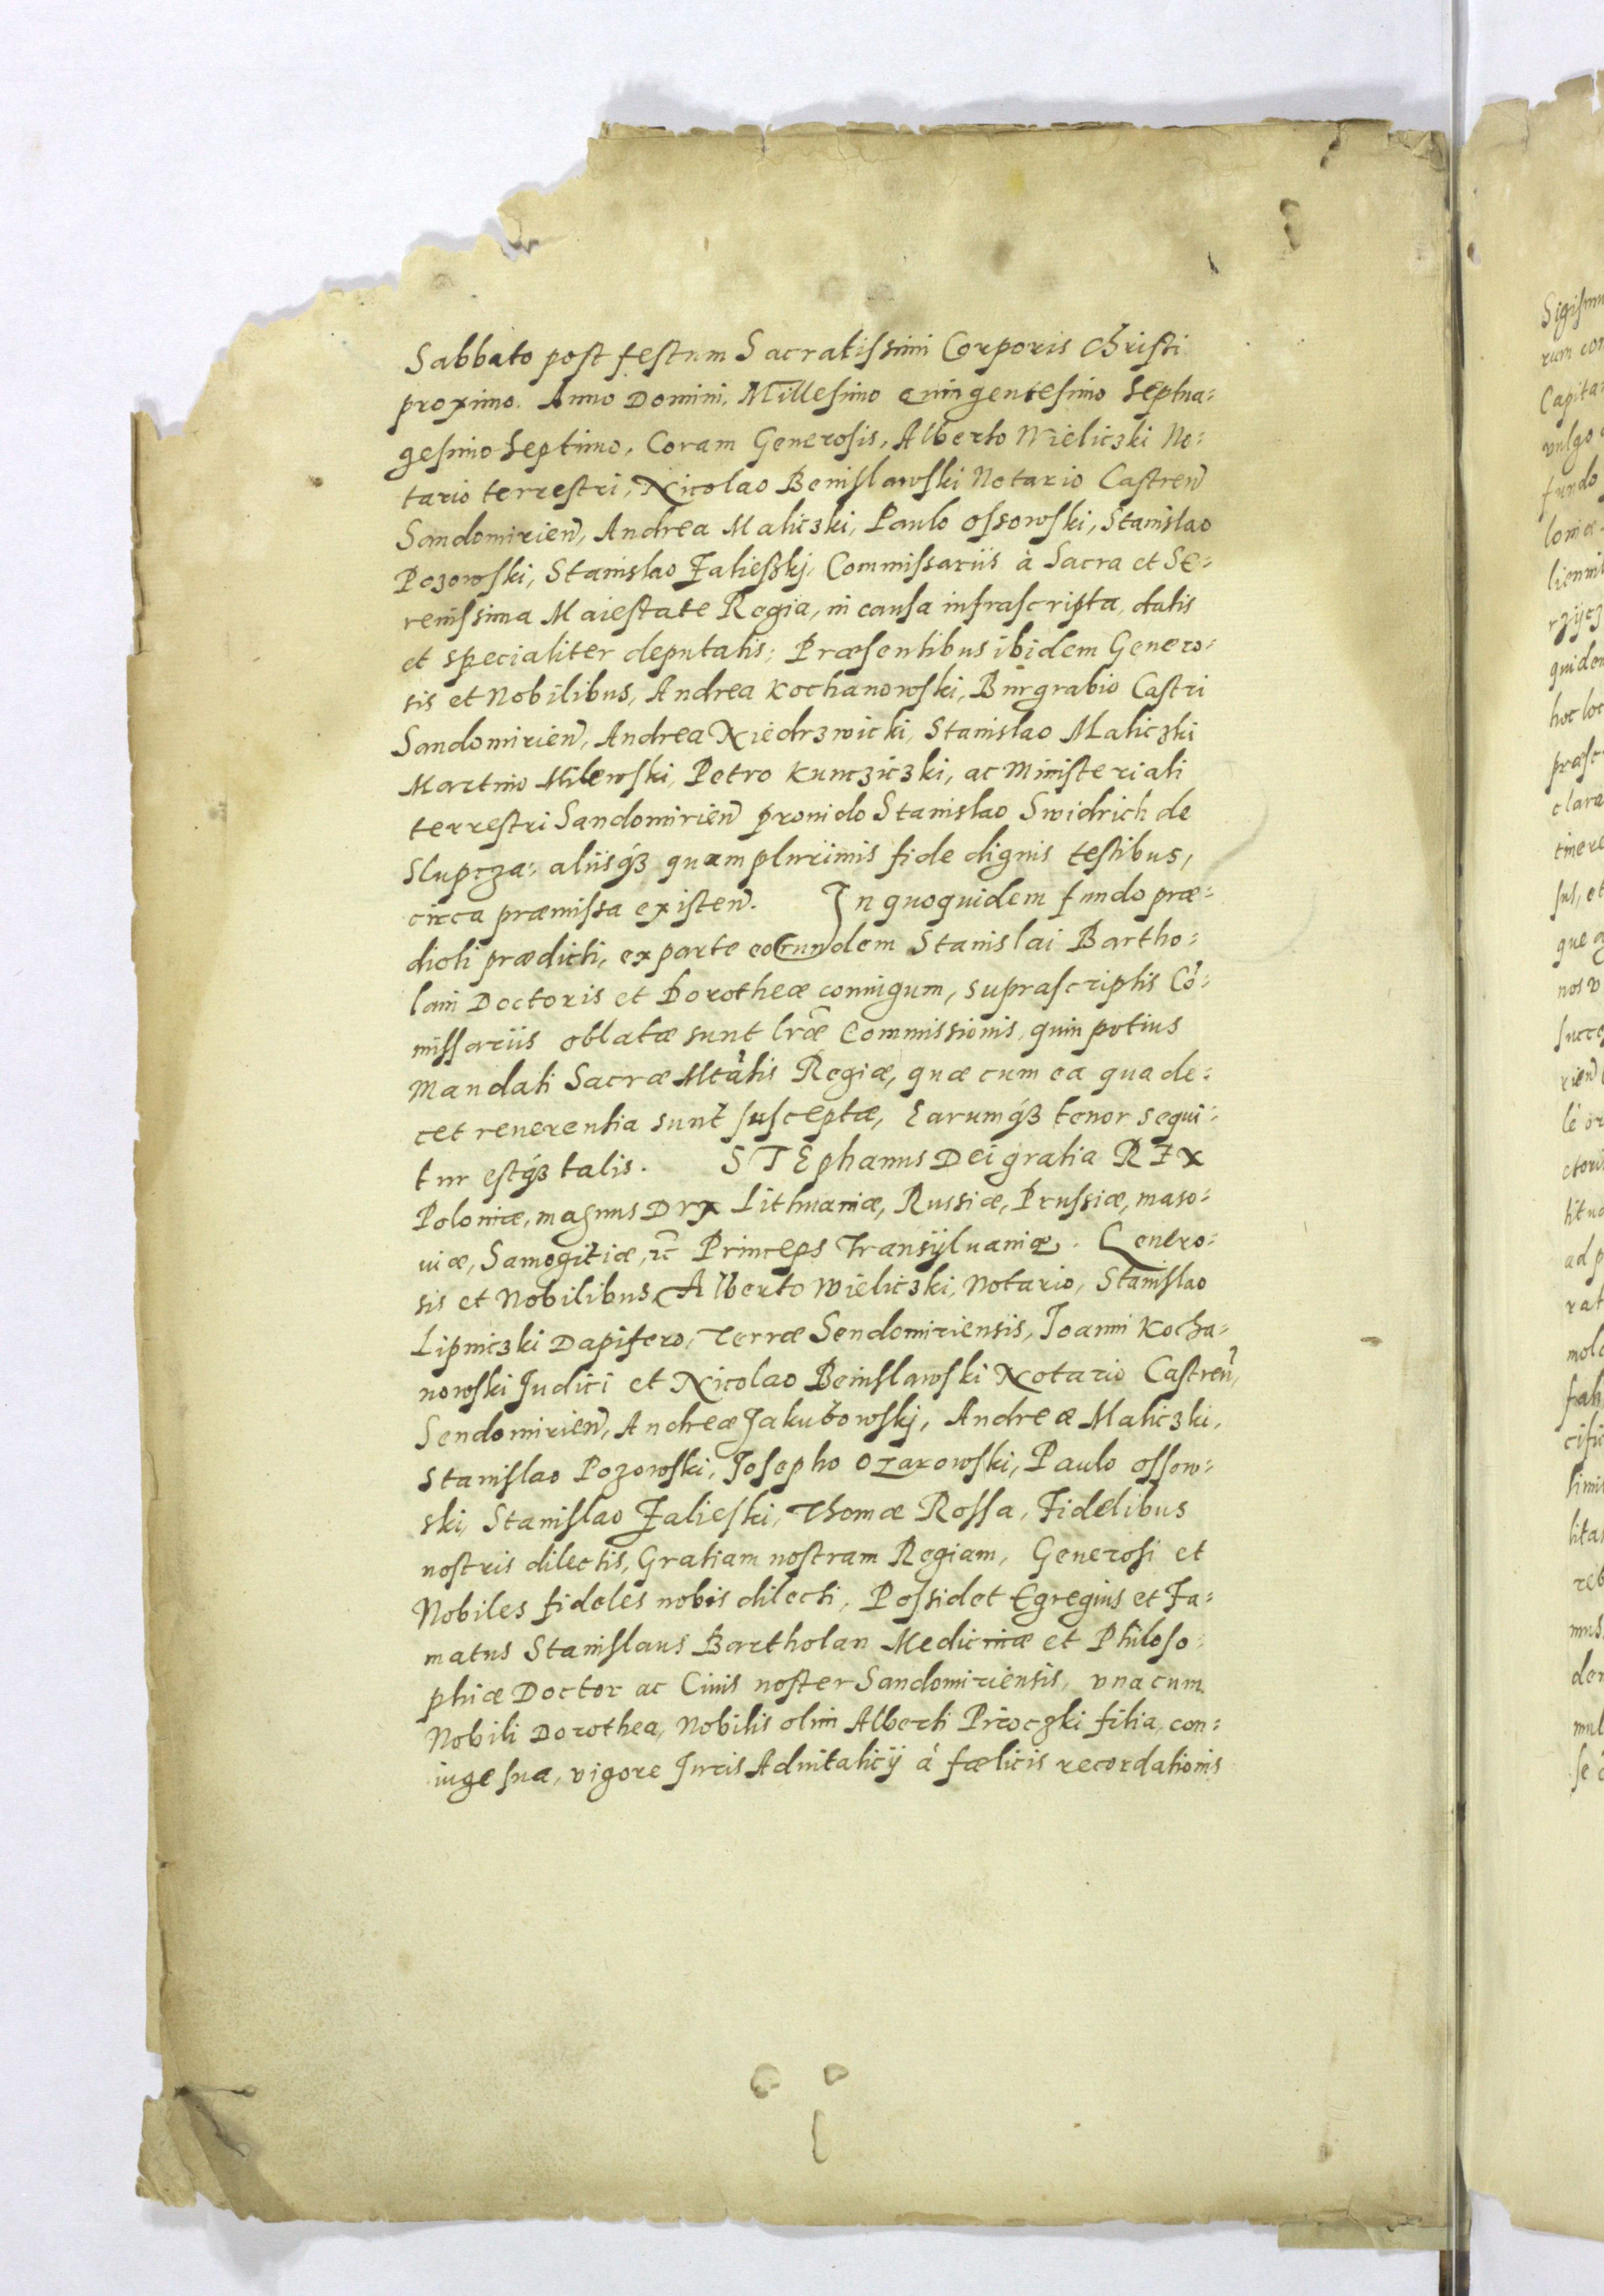 Sabbato post festum Sacratissimi Corporis Christi
proximo. Anno Domini, Millesimo Quingentesimo Septua=
gesimo Septimo, Coram Generosis, Alberto Wieliczki No=
tario terrestri, Nicolao Beinislawski Notario Castren
Sandomirien, Andrea Maliczki, Paulo Ossowski, Stanislao
Pozowski, Stanislao Falieszkj, Commissariis à Sacra et Se=
renissima Maiestate Regia, in causa infrascripta, datis
et specialiter deputatis; Præsentibus ibidem Genero=
sis et Nobilibus, Andrea Kochanowski, Burgrabio Castri
Sandomirien, Andrea Niedrzwicki, Stanislao Maliczki
Martino Milewski, Petro Kuncziczki, ac Ministeriali
terrestri Sandomirien prouido Stanislao Swidrich de
Slupcza: aliisqꝫ quamplurimis fide dignis testibus,
circa præmissa existen. In quoquidem fundo præ=
dioli prædicti, ex parte eorundem Stanislai Bartho=
lain Doctoris et Dorotheæ coniugum, suprascriptis Cō=
missariis oblatæ sunt lr̃æ Commissionis, quin potius
Mandati Sacræ Mtàtis Regiæ, quæ cum ea qua de=
cet reuerentia sunt susceptæ, Earumqꝫ tenor sequi=
tur estqꝫ talis. STEphanus Dei gratia REX
Poloniæ, magnus Dvx Lithuaniæ, Russiæ, Prussiæ, maso=
uiæ, Samogitiæ, ꝛc̃ Princeps Transÿluaniæ. Genero=
sis et Nobilibus, Alberto Wieliczki, Notario, Stanislao
Lipniczki Dapifero, Terræ Sendomiriensis, Joanni Kocha=
nowski Judici et Nicolao Beinislawski Notario Castren,
Sendomirien, Andreæ Jakubowskj, Andreæ Maliczki,
Stanislao Pozowski, Josepho Ozarowski, Paulo Ossow=
ski, Stanislao Falieski, Thomæ Rossa, Fidelibus
nostris dilectis, Gratiam nostram Regiam, Generosi et
Nobiles fideles nobis dilecti, Possidet Egregius et Fa=
matus Stanislaus Bartholan Medicinæ et Philoso=
phiæ Doctor ac Ciuis noster Sandomiriensis, vna cum
Nobili Dorothea, Nobilis olim Alberti Piroczki filia, con=
iuge sua, vigore Juris Aduitalicÿ à fælicis recordationis